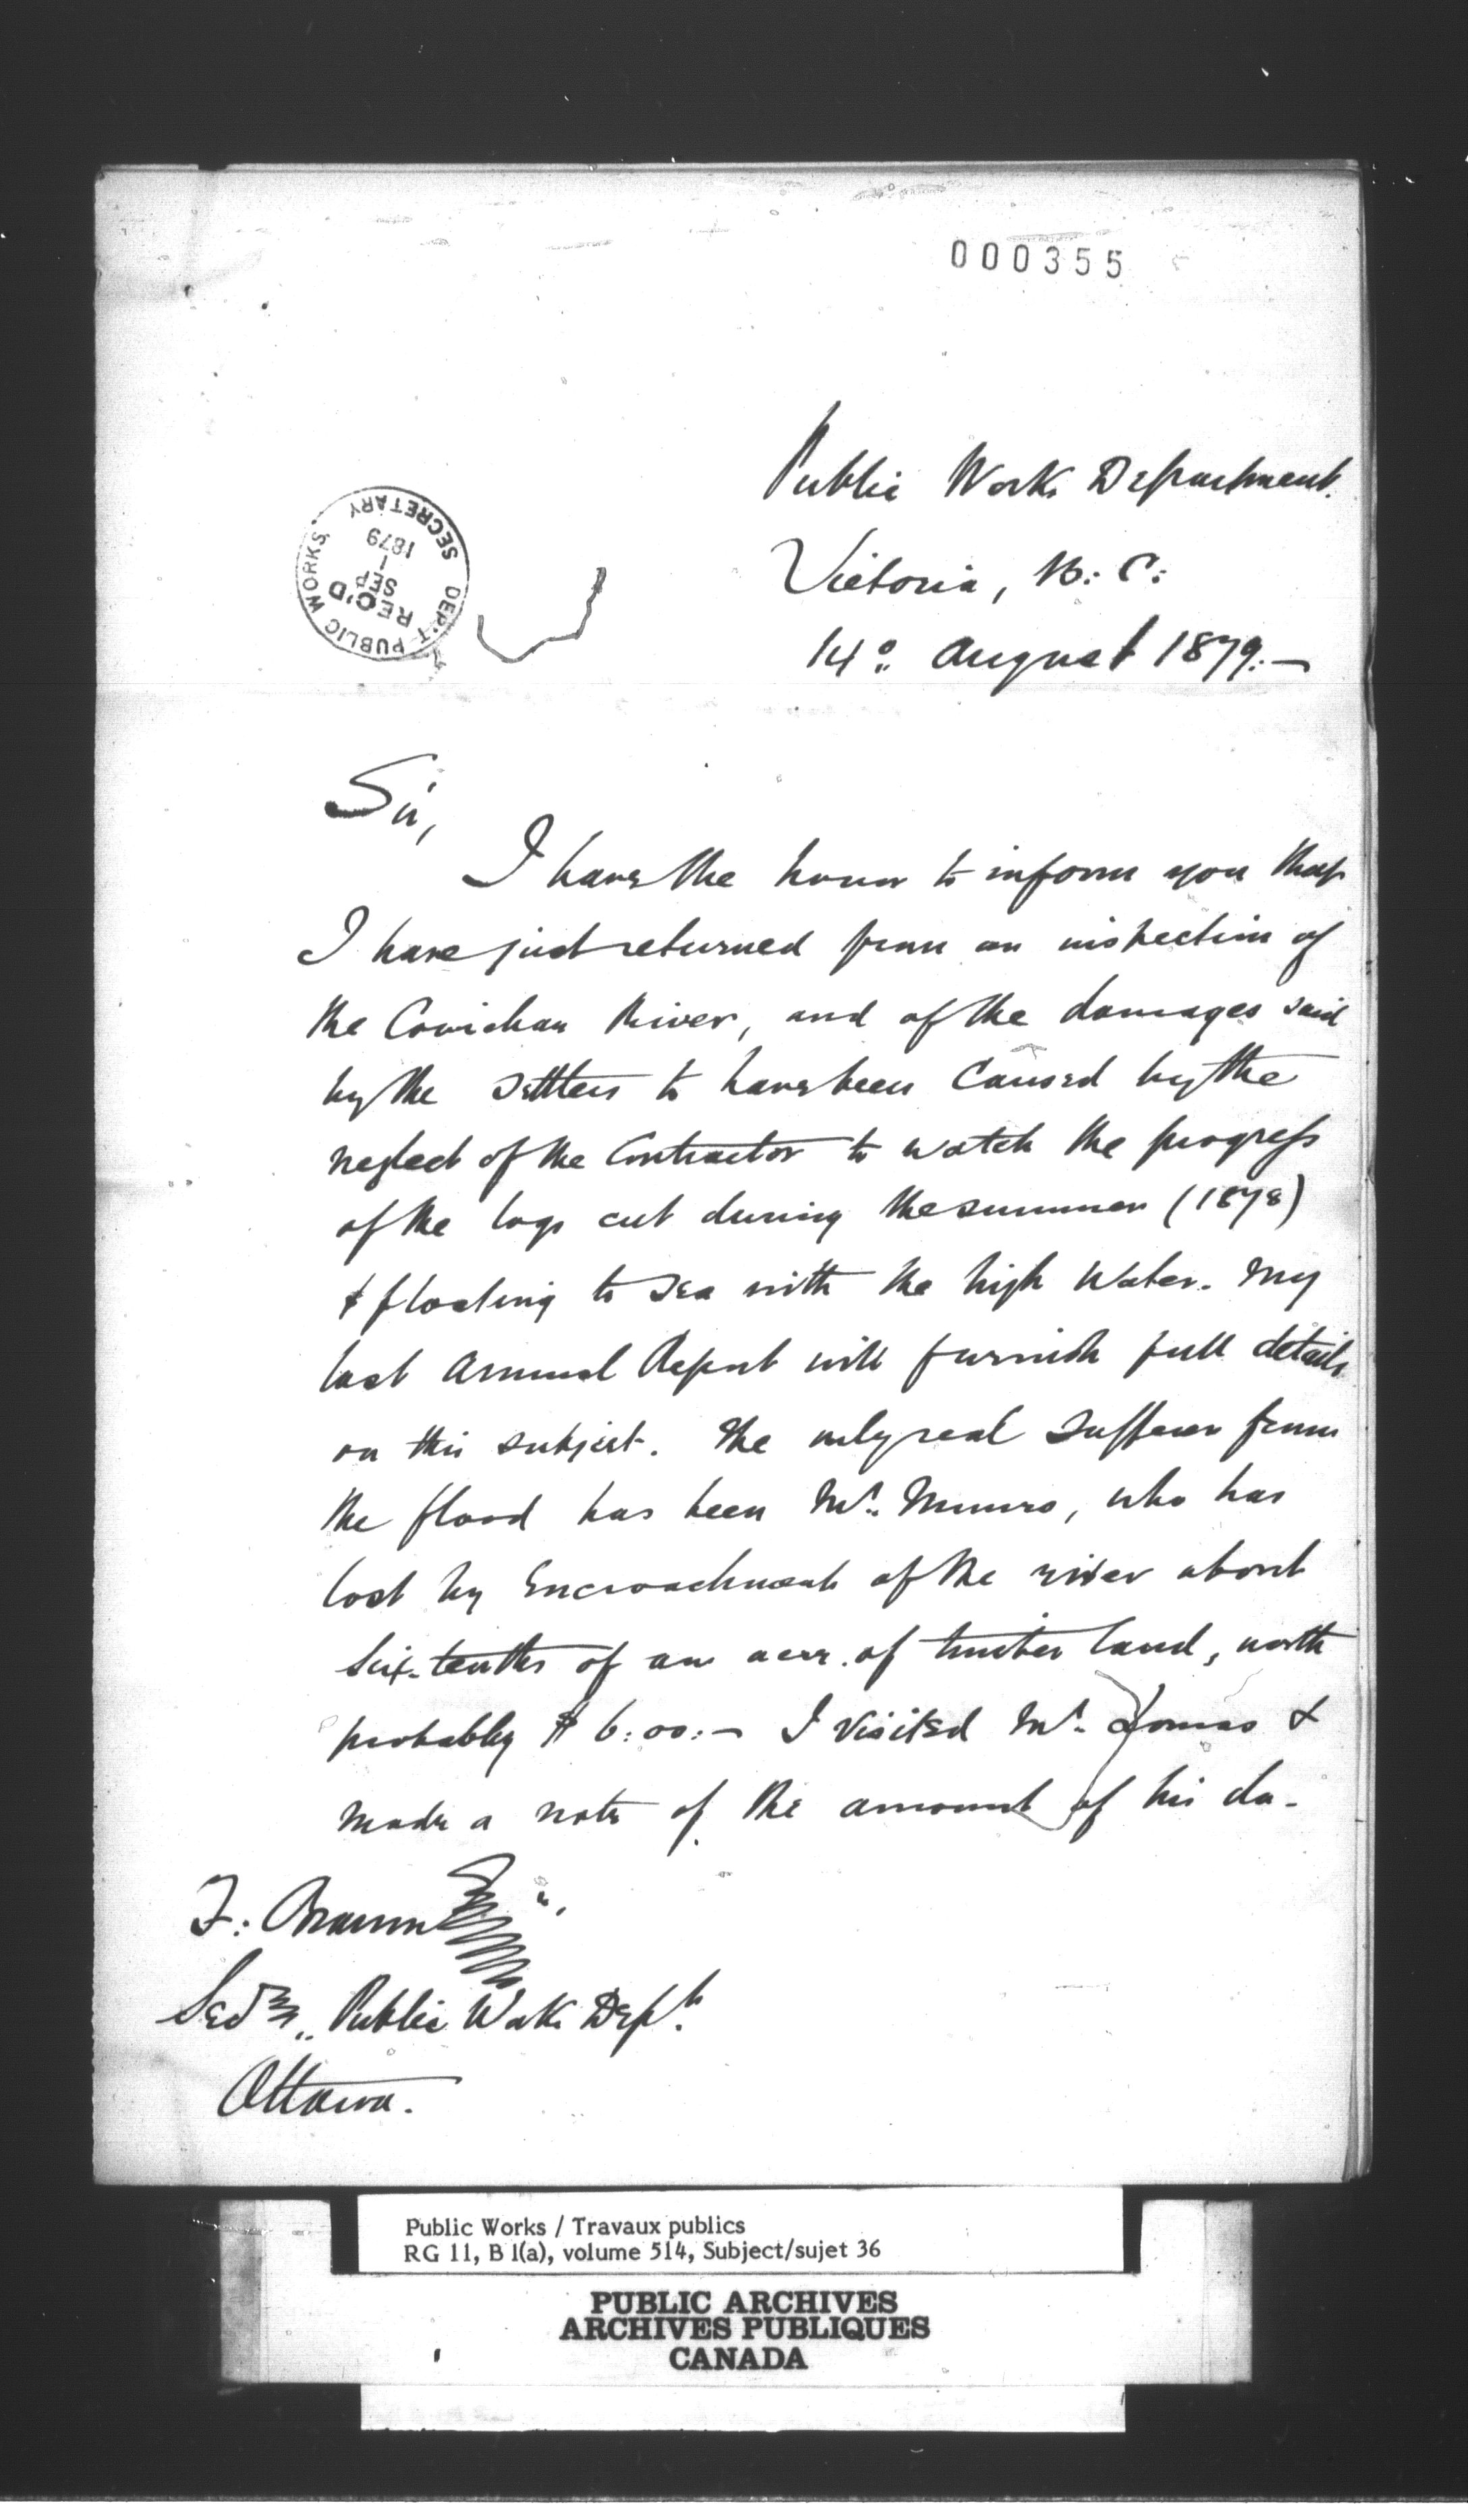 000355
Public Works Department.
Victoria, B.C.
14º August 1879.—
DEP'T. PUBLIC WORKS.
REC'D
SEP
1
1879
SECRETARY
Sir,
I have the honor to inform you that
I have just returned from an inspection of
the Cowichan River, and of the damages said
by the settlers to have been caused by the
neglect of the Contractor to watch the progress
of the logs cut during the summer (1878)
& floating to sea with the high water. My
last Annual Report will furnish full details
on this subject. The only real sufferer from
the flood has been Mr. Munro, who has
lost by encroachment of the river about
six-tenths of an acre of timber land, worth
probably $6:00:— I visited Mr. Lomas &
made a note of the amount of his da-
F: Braun Esq.,
Secry., Public Works Dept.
Ottawa.
Public Works / Travaux publics
RG 11, B 1(a), volume 514, Subject/sujet 36
PUBLIC ARCHIVES
ARCHIVES PUBLIQUES
CANADA